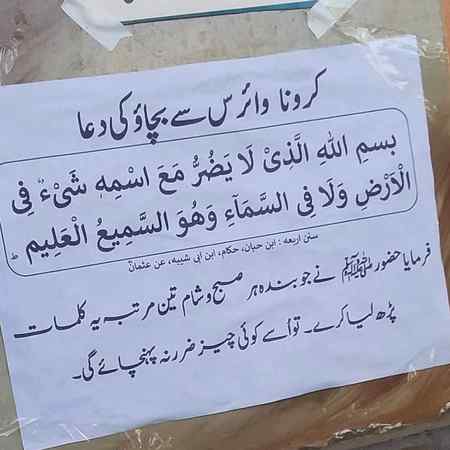 کرونا وائرس سے بچاؤ کی دعا
بِسمِ اللہِ الَّذِیْ لَا یَضُرُّ مَعَ اسْمِہٖ شَیْءٌ فِی
الْاَرْضِ وَلَا فِی السَّمَآءِ وَھُوَ السَّمِیعُ الْعَلِیم ط
سنن اربعہ : ابن حبان، حکام، ابن ابی شیبہ، عن عثمانؓ
فرمایا حضور ﷺ نے جو بندہ ہر صبح و شام تین مرتبہ یہ کلمات
پڑھ لیا کرے۔ تو اُسے کوئی چیز ضرر نہ پہنچائے گی۔